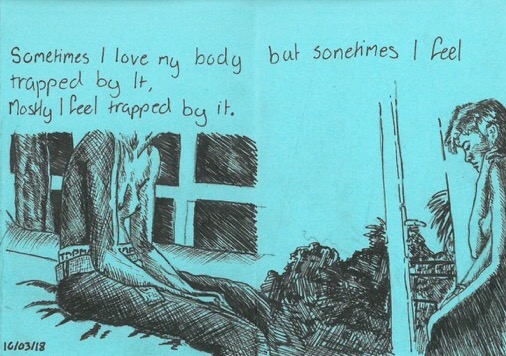 Sometimes I love my body but sometimes I feel
trapped by It,
Mostly I feel trapped by it.
10/03/18